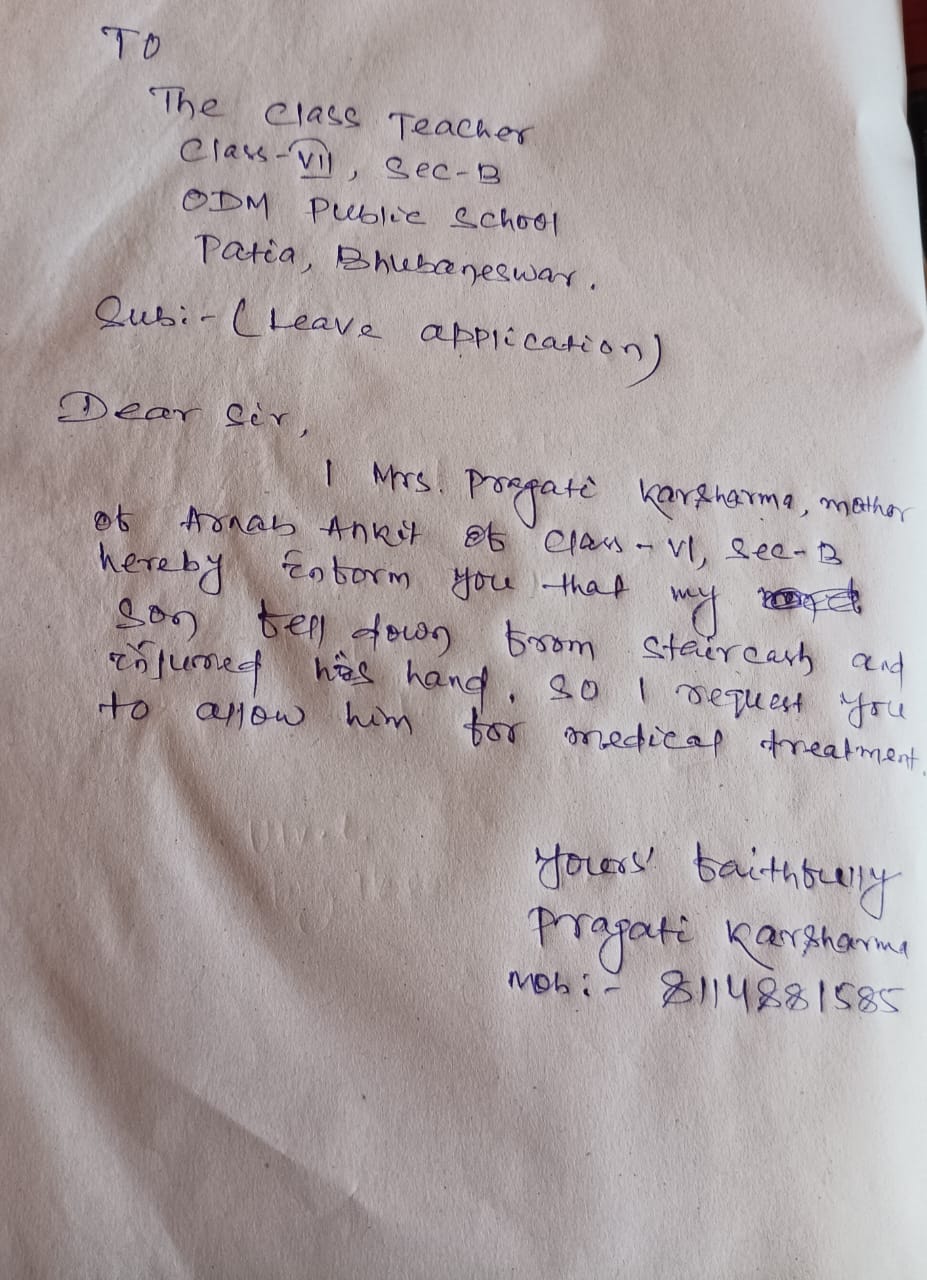 TO
The Class Teacher
Class-VII, Sec-B
ODM Public School
Patia, Bhubaneswar.
Sub:- (Leave application)
Dear Sir,
I Mrs. Pragati Karsharma, mother
of Arnab Ankit of Class-VI, Sec-B
hereby inform you that my
son fell down from staircash and
injured his hand. so I request you
to allow him for medical treatment.
Yours' faithfully
Pragati Karsharma
Mob:- 8114881585